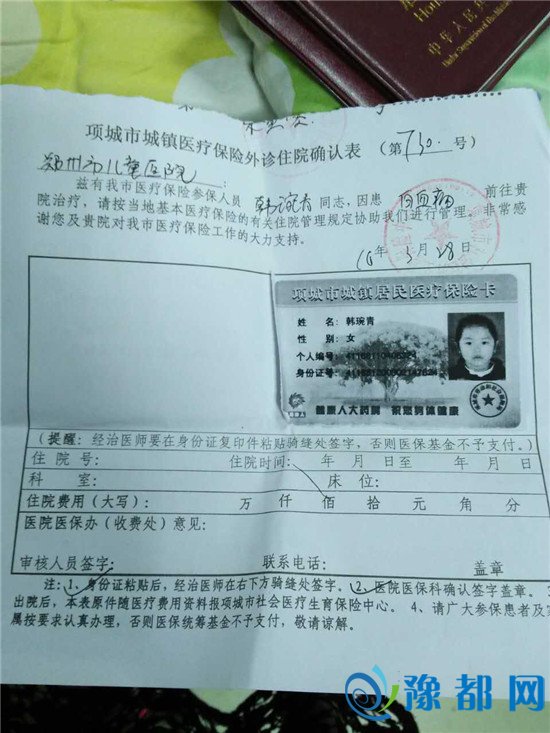 中华人民
项城市城镇医疗保险外诊住院确认表 (第 730. 号)
郑州市儿童医院:
兹有我市医疗保险参保人员 韩琬青 同志，因患 白血病 前往贵
院治疗，请按当地基本医疗保险的有关住院管理规定协助我们进行管理。非常感
谢您及贵院对我市医疗保险工作的大力支持。
年 月 28 日
项城市城镇居民医疗保险卡
姓 名: 韩琬青
性 别: 女
个人编号:
身份证号:
健康人大药房 祝您身体健康
(提醒: 经治医师要在身份证复印件粘贴骑缝处签字，否则医保基金不予支付。)
住 院 号: 住院时间: 年 月 日至 年 月 日
科 室: 床 位:
住院费用(大写): 万 仟 佰 拾 元 角 分
医院医保办(收费处)意见:
审核人员签字: 联系电话: 盖章
注: 1、身份证粘贴后，经治医师在右下方骑缝处签字。 2、医院医保科确认签字盖章。
出院后，本表原件随医疗费用资料报项城市社会医疗生育保险中心。 4、请广大参保患者及
属按要求认真办理，否则医保统筹基金不予支付，敬请谅解。
豫都网